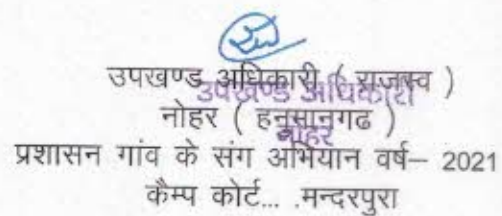 उपखण्ड अधिकारी ( राजस्व )
उपखण्ड अधिकारी
नोहर ( हनुमानगढ )
नोहर
प्रशासन गांव के संग अभियान वर्ष– 2021
कैम्प कोर्ट... .मन्दरपुरा